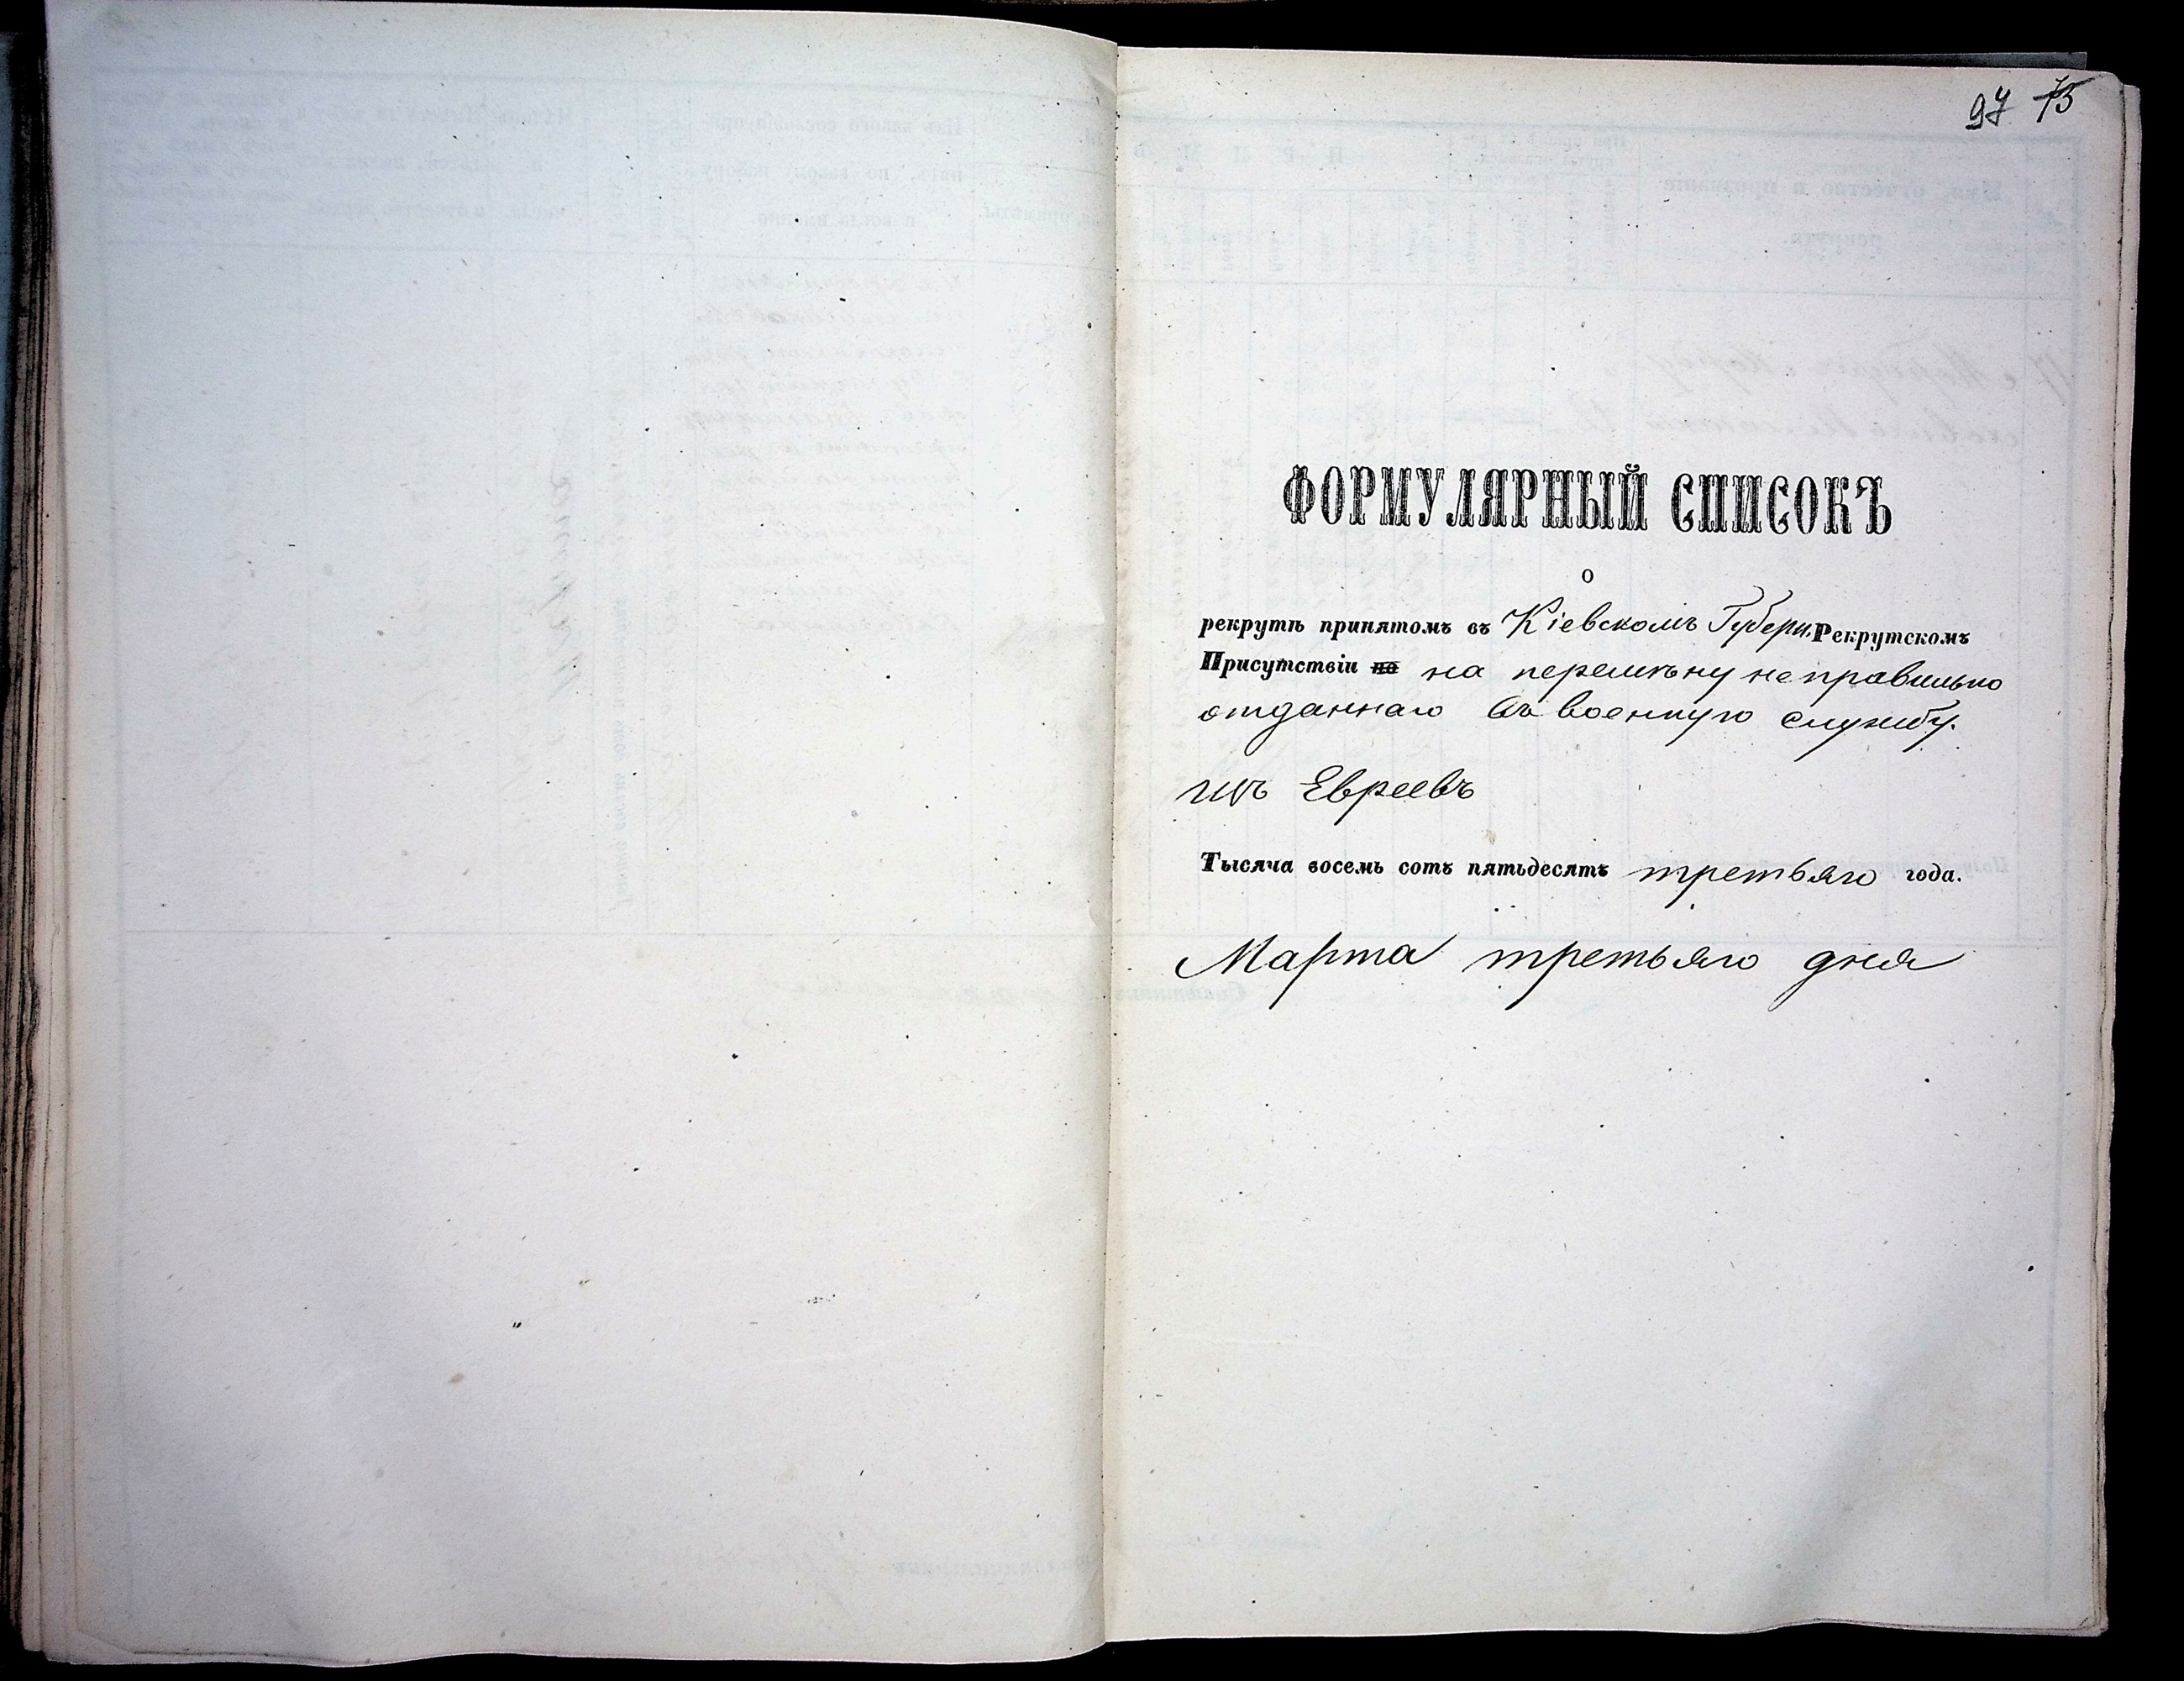 97 75
ФОРМУЛЯРНЫЙ СПИСОКЪ
о
рекрутѣ принятомъ въ Кіевскомъ Губерн. Рекрутскомъ
Присутствіи по на перемѣну неправильно
отданнаго въ военную службу.
изъ Евреевъ
Тысяча восемь сотъ пятьдесятъ третьяго года.
Марта третьяго дня